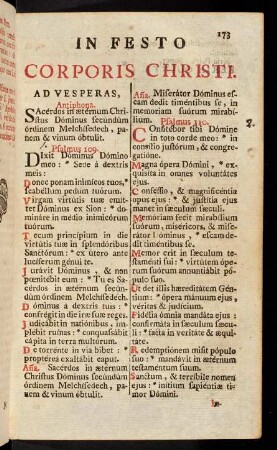 173
IN FESTO
CORPORIS CHRISTI.
AD VESPERAS,
Antiphona.
Sacérdos in ætérnum Chri-
stus Dóminus secúndum
órdinem Melchísedech, pa-
nem & vinum óbtulit.
Psalmus 109.
Dixit Dóminus Dómino
meo: * Sede à dextris
meis:
Donec ponam inimícos tuos,
* scabéllum pedum tuórum.
Virgam virtútis tuæ emit-
tet Dóminus ex Sion: * do-
mináre in médio inimicórum
tuórum.
Tecum princípium in die
virtútis tuæ in splendóribus
Sanctórum: * ex útero ante
lucíferum génui te.
Jurávit Dóminus, & non
pœnitébit eum: * Tu es Sa-
cérdos in ætérnum secún-
dùm órdinem Melchísedech.
Dóminus à dextris tuis: *
confrégit in die iræ suæ reges.
Judicábit in natiónibus, im-
plébit ruínas: * conquassábit
cápita in terra multórum.
De torrénte in via bibet: *
proptéreà exaltábit caput.
Aña. Sacérdos in ætérnum
Christus Dóminus secúndum
órdinem Melchísedech, pa-
nem & vinum óbtulit.
Aña. Miserátor Dóminus es-
cam dedit timéntibus se, in
memóriam suórum mirabí-
lium.
Psalmus 110.
2.
Confitébor tibi Dómine
in toto corde meo: * in
consílio justórum, & congre-
gatióne.
Magna ópera Dómini, * ex-
quisíta in omnes voluntátes
ejus.
Conféssio, & magnificéntia
opus ejus: * & justítia ejus
manet in sæculum sæculi.
Memóriam fecit mirabílium
suórum, miséricors, & mise-
rátor Dóminus, * escam de-
dit timéntibus se.
Memor erit in sæculum testa-
ménti sui: * virtútem óperum
suórum annuntiábit pópu-
lo suo.
Ut det illis hæreditátem Gén-
tium: * ópera mánuum ejus,
véritas & judícium.
Fidélia ómnia mandáta ejus:
confirmáta in sæculum sæcu-
li: * facta in veritáte & æquitá-
te.
Redemptiónem misit pópulo
suo: * mandávit in ætérnum
testaméntum suum.
Sanctum, & terríbile nomen
ejus: * inítium sapiéntiæ ti-
mor Dómini.
In-